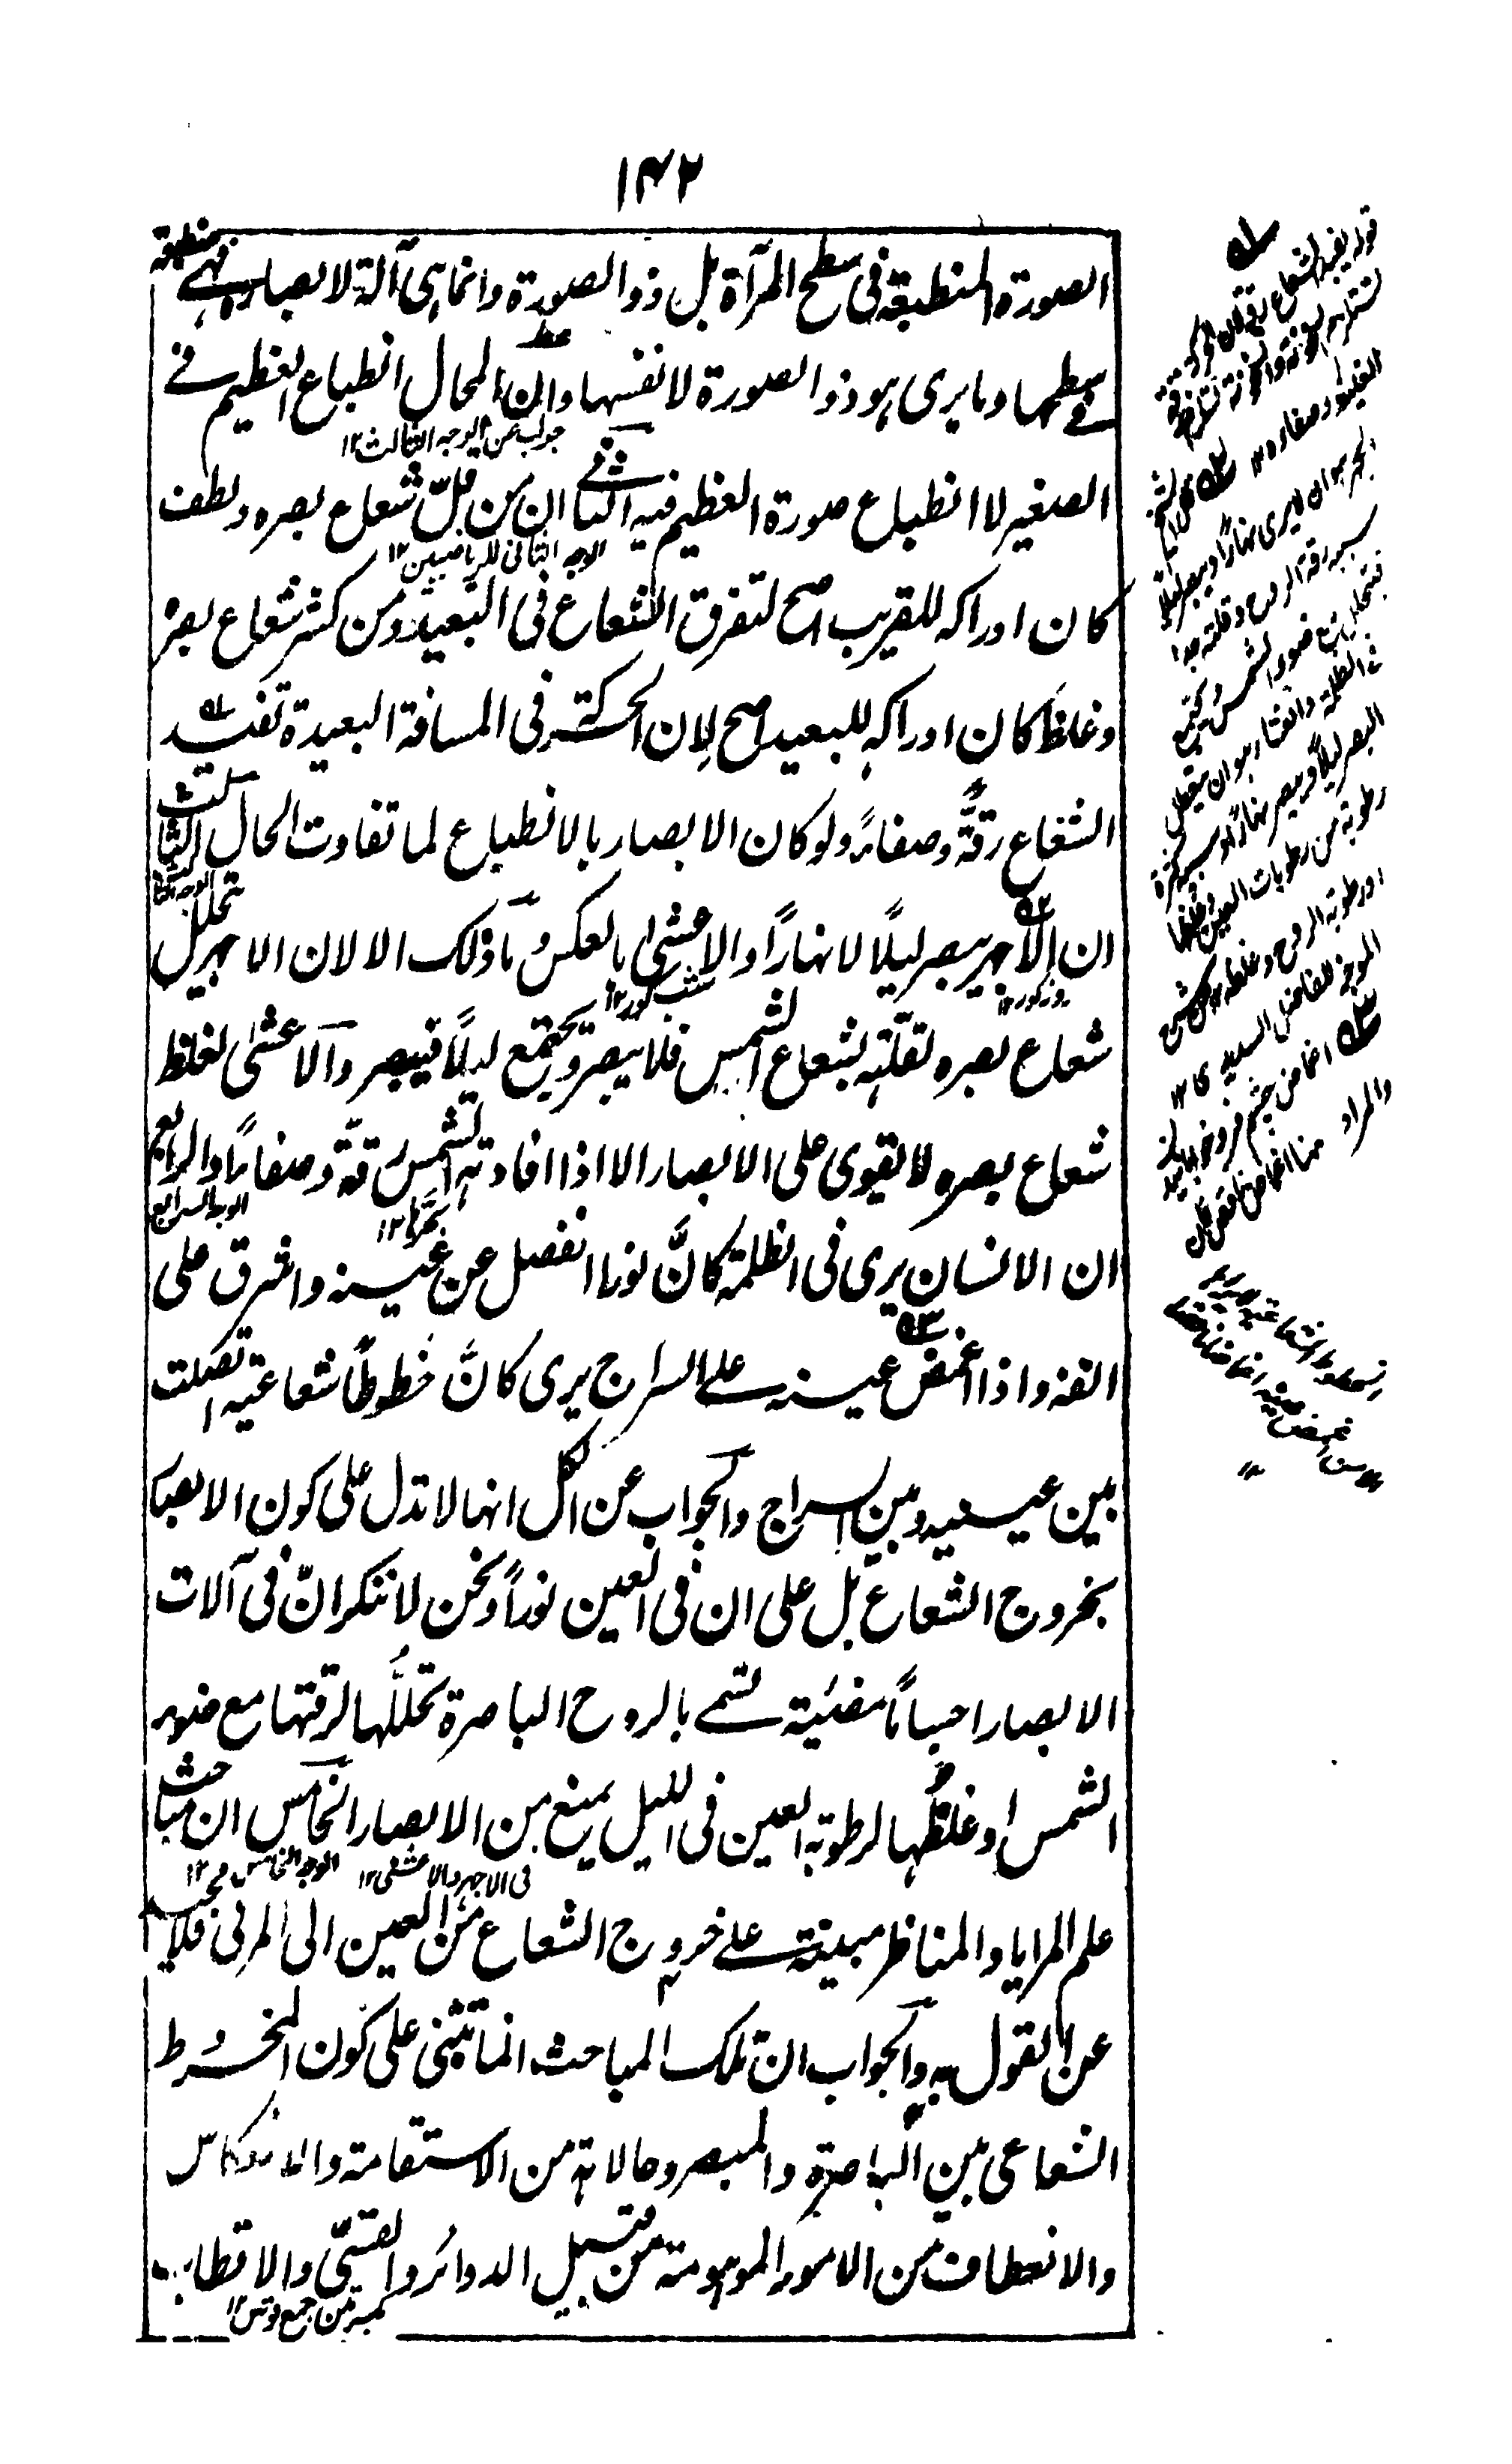 ١٤٢
الصورة المنطبعة فى سطح المرآة بل ذو الصورة وانما هى آلة لابصاره فهى منطبعة
فى سطحها وما يرى هو ذو الصورة لا نفسها وان المحال انطباع العظيم فى
جواب عن الوجه الثالث١٢
الصغير لا انطباع صورة العظيم فيه الثانى ان من قلّ شعاع بصره ولطف
الوجه الثانى للرياضيين١٢
كان ادراكه للقريب اصح لتفرق الشعاع فى البعيد ومن كثر شعاع بصره
وغلظ كان ادراكه للبعيد اصح لان الحركة فى المسافة البعيدة تفيد
الشعاع رقّة وصفاءً ولو كان الابصار بالانطباع لما تفاوت الحال الثالث
ان الاجهر يبصر ليلًا لا نهارًا والاعشى بالعكس وما ذلك الا لان الاجهر تحلل
روزكور١٢ شب كور١٢
شعاع بصره لقلته بشعاع الشمس فلا يبصر ويجتمع ليلًا فيبصر والاعشى لغلظ
شعاع بصره لا يقوى على الابصار الا اذا افادته الشمس رقّة وصفاءً والرابع
الوجه الرابع
ان الانسان يرى فى الظلمة كانَّ نورا انفصل عن عينه واشرق على
انفه واذا اغمض عينه على السراج يرى كانَّ خطوطًا شعاعية اتصلت
بين عينيه وبين السراج والجواب عن الكل انها لا تدل على كون الابصار
بخروج الشعاع بل على ان فى العين نورًا ونحن لا ننكر انّ فى آلات
الابصار اجسامًا مضيئة تسمى بالروح الباصرة تحلُّلها لرقتها مع ضوء
الشمس او غلظُها لرطوبة العين فى الليل يمنع من الابصار الخامس ان مباحث
فى الاجهر والاعشى١٢ الوجه الخامس١٢
علم المرايا والمناظر مبينة على خروج الشعاع من العين الى المرئى فلا محيص
عن القول به والجواب ان تلك المباحث انما تبتنى على كون المخروط
الشعاعى بين الباصرة والمبصر وحالاته من الاستقامة والانعكاس
والانعطاف من الامور الموهومة من قبيل الدوائر والقسىّ والاقطاب
جمع قوس١٢
قوله يفيد الشعاع
الاجهر هو ان لا يرى نهارًا ويبصر ليلا
سببه رقة الروح وقلته جدا
ضوء الشمس ويجتمع
فى الظلمة والعشاء هو ان يتعطل
البصر ليلًا ويبصر نهارًا وسببه كثرة
رطوبة من رطوبات العين وغلظها
او رطوبة الروح وغلظه
الموجز للفاضل السديدى١٢
والمراد